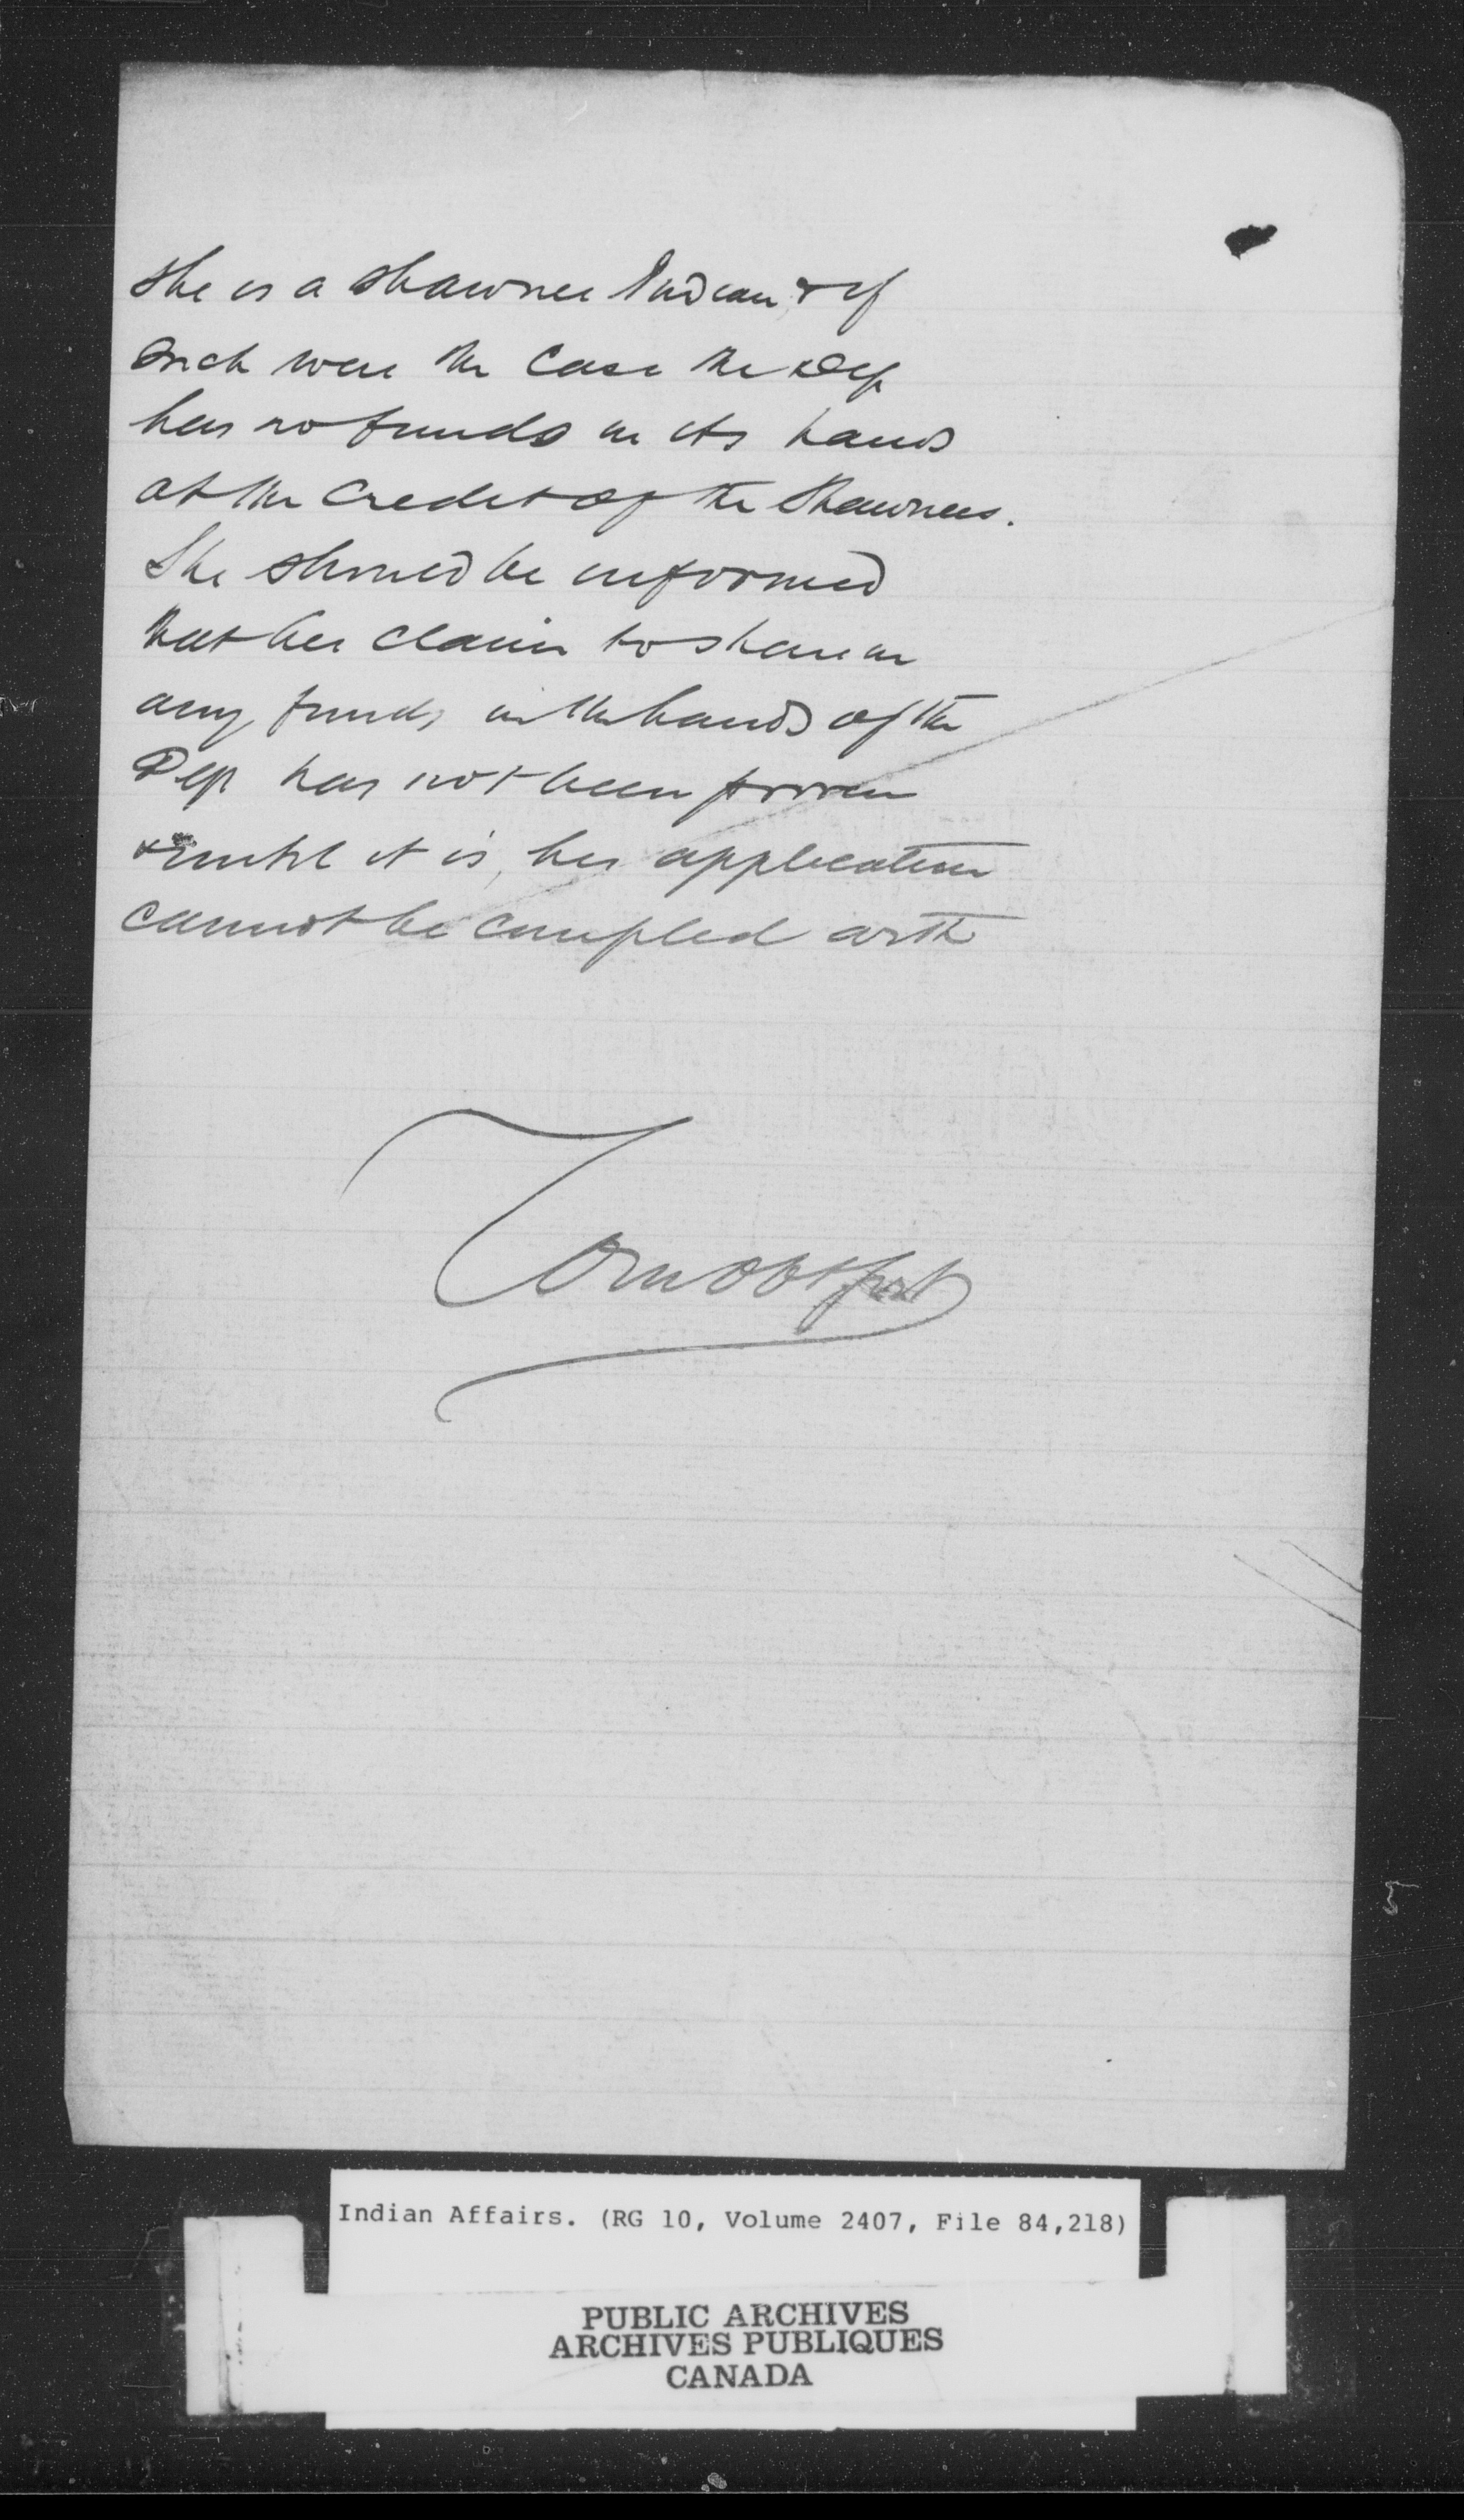 she is a Shawnee Indian, & if
such were the case the Dep
has no funds in its hands
at the credit of the Shawnees.
She should be informed
that her claim to share in
any funds in the hands of the
Dep has not been proven
& until it is, her application
cannot be complied with
Indian Affairs. (RG 10, Volume 2407, File 84,218)
PUBLIC ARCHIVES
ARCHIVES PUBLIQUES
CANADA